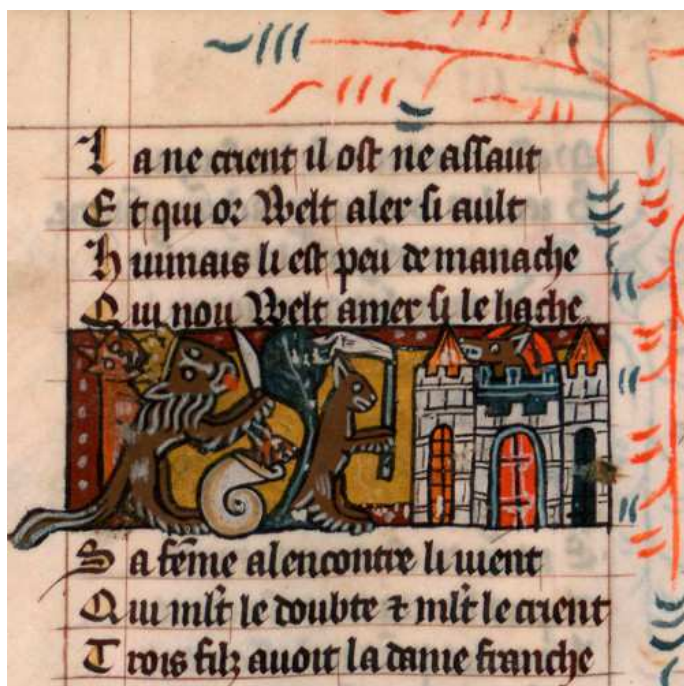 Ia ne crient il ost ne assaut
Et qui or Welt aler si ault
Huimais li est peu de manache
Qui nou Welt amer si le hache
Sa fēme alencontre li uient
Qui ml't le doubte ⁊ ml't le crient
Trois filz auoit la dame franche